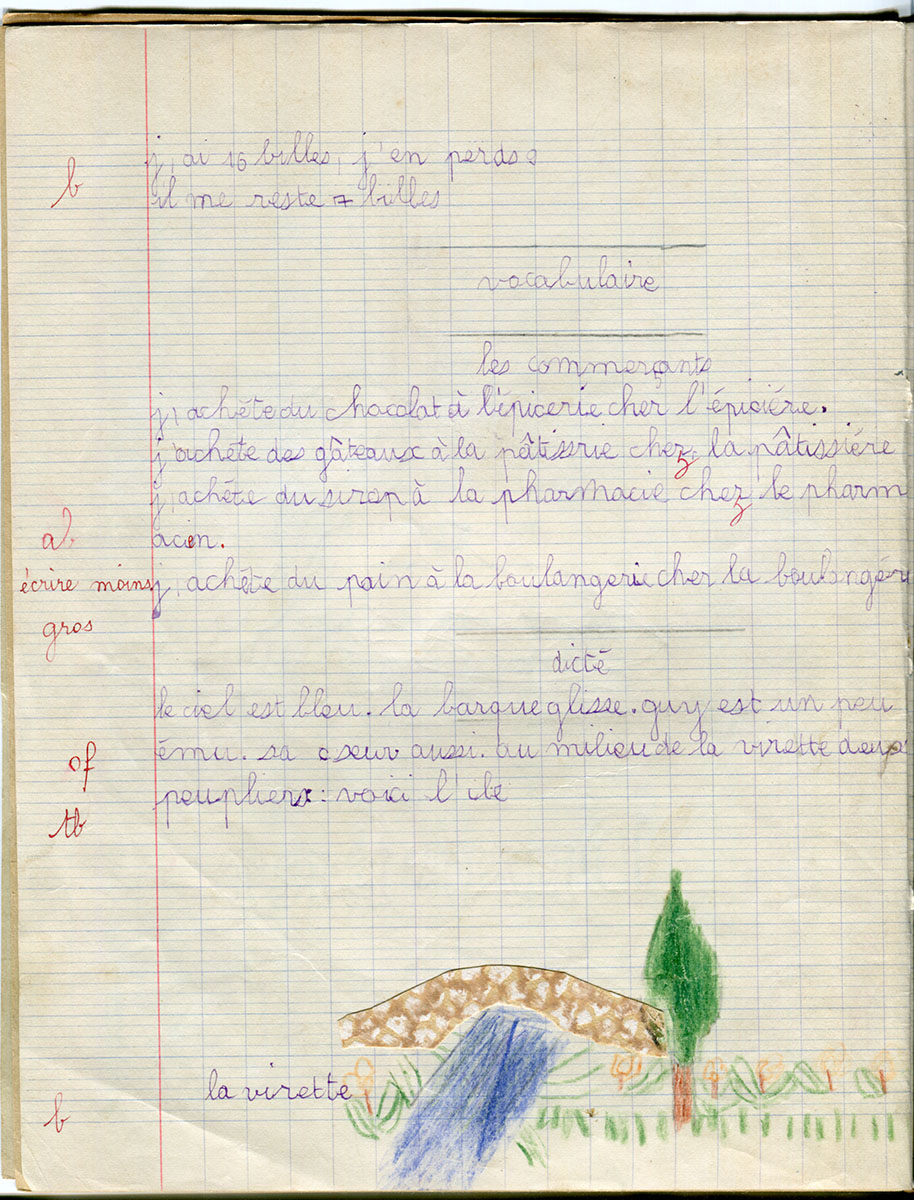 b
j, ai 16 billes, j'en perds 9
il me reste 7 billes
vocabulaire
les commerçants
j, achète du chocolat à l'épicerie cher l'épicière.
j'achète des gâteaux à la pâtissrie chez la pâtissière
j, achète du sirop à la pharmacie chez le pharm
acien.
ab
écrire moins
gros
j, achète du pain à la boulangerie cher la boulangér
dicté
le ciel est bleu. la barque glisse. guy est un peu
ému. sa sœur aussi. au milieu de la virette deux
peupliers : voici l'ile
of
tb
la virette
b